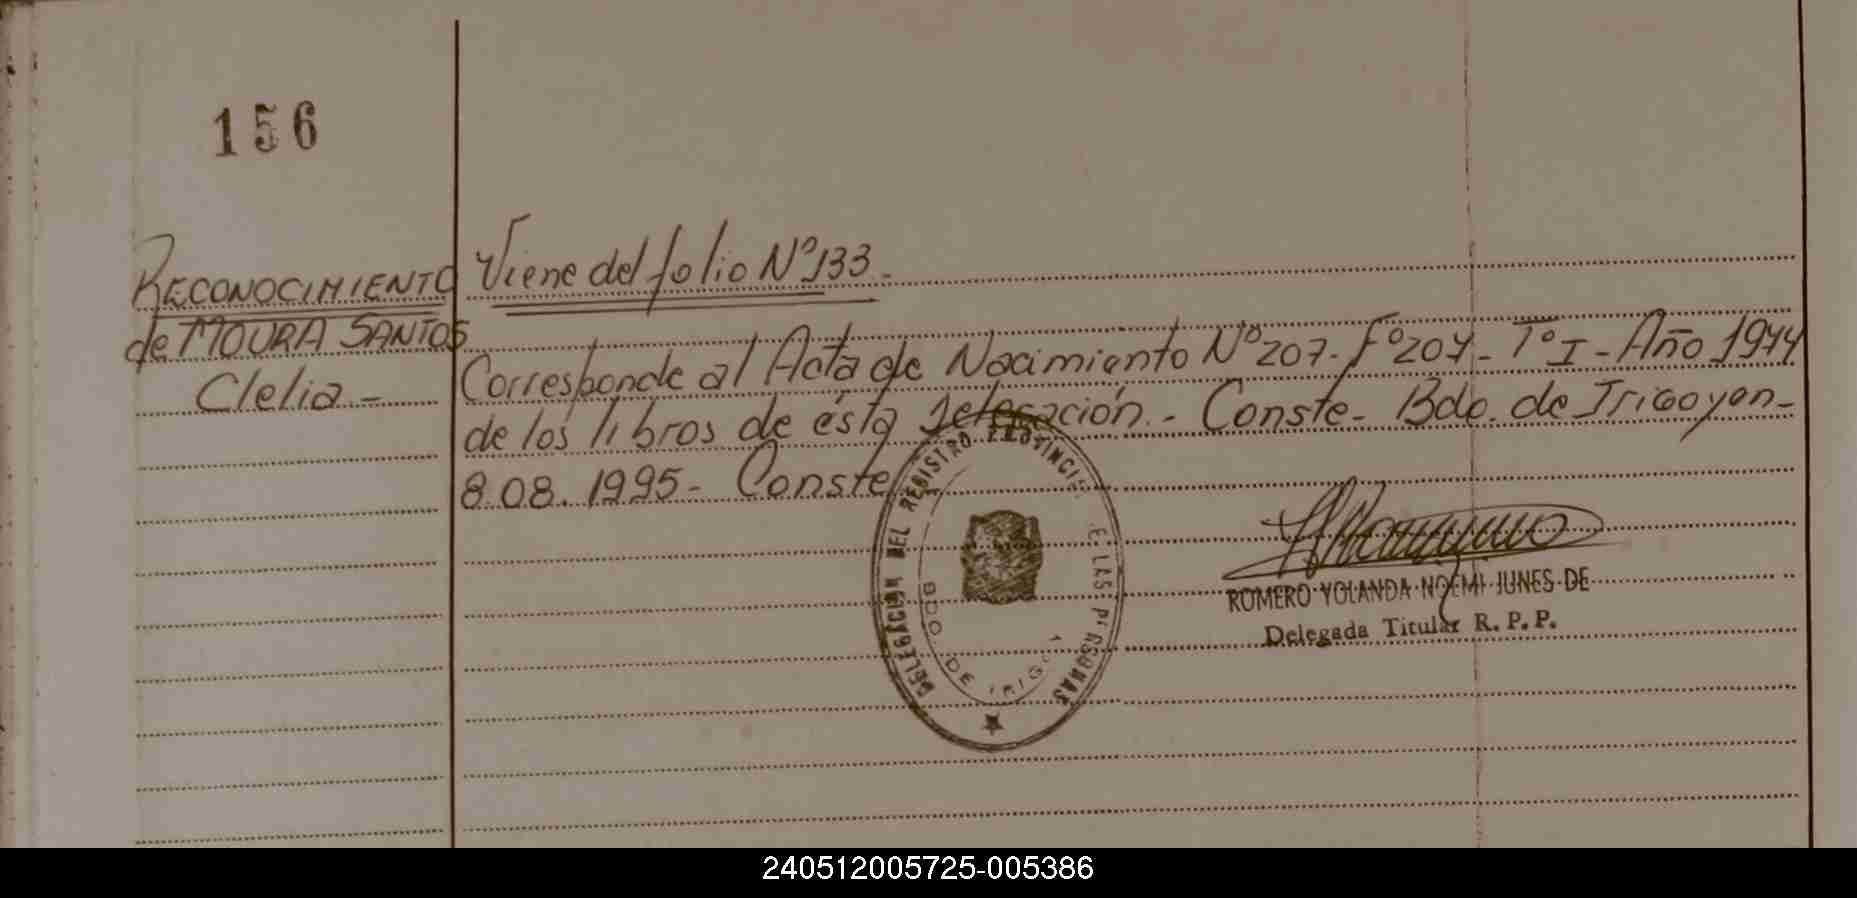 156
RECONOCIMIENTO
de MOURA SANTOS
Clelia.-
Viene del folio Nº 133.-
Corresponde al Acta de Nacimiento Nº 207- Fº 207- Tº I- Año 1944
de los libros de ésta Delegación.- Conste- Bdo. de Irigoyen-
8.08.1995- Conste
DELEGACION DEL REGISTRO PROVINCI E LAS PERSONAS
BDO. DE IRIGOY
ROMERO YOLANDA NOEMI JUNES DE
Delegada Titular R. P. P.
240512005725-005386